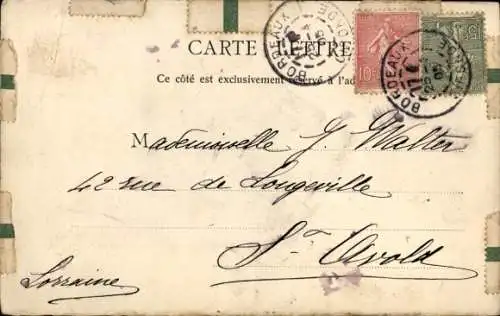 CARTE LETTRE
Ce côté est exclusivement réservé à l'ad
Mademoiselle J. Walter
42 rue de Longeville
St Avold
Lorraine
BORDEAUX
GIRONDE
BORDEAUX
GIRONDE
10
15